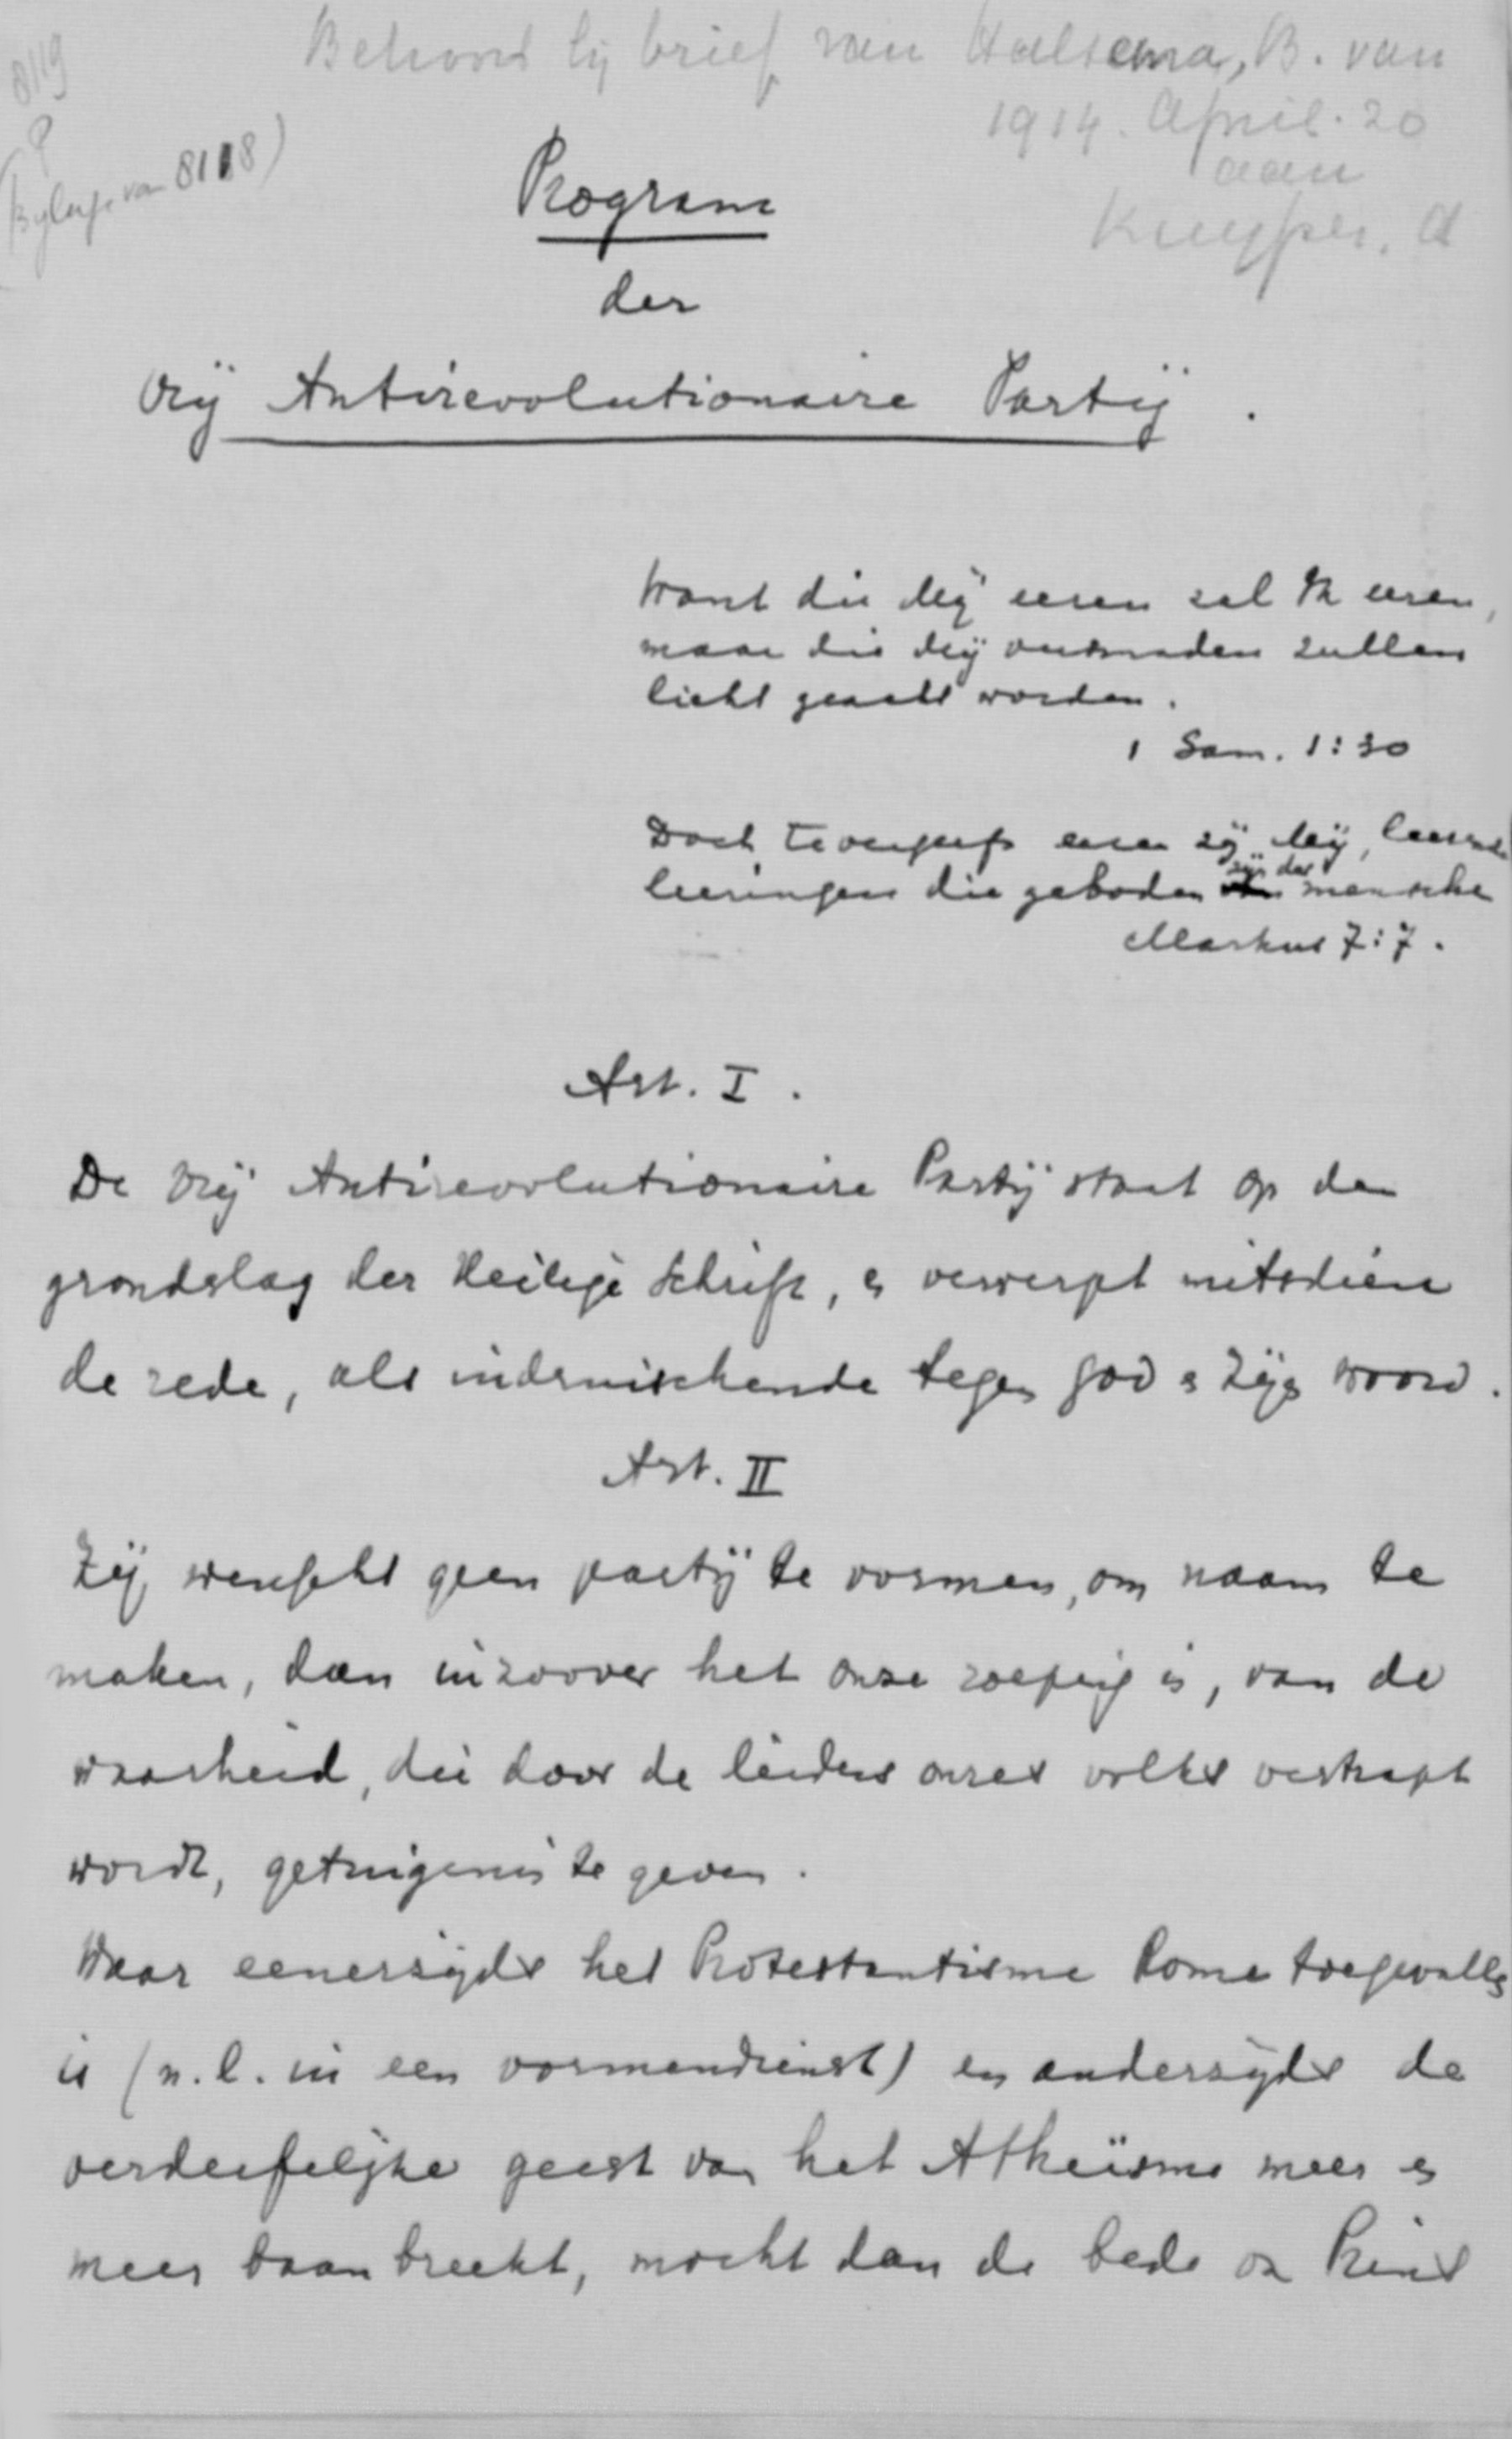 8119
?
(Bylage van 8118)
Behoord bij brief van Halsema, B. van
1914. April. 20
aan
Kuyper. A
Program
der
Vrij Antirevolutionaire Partij.
Want die Mij eeren zal Ik eeren,
maar die Mij versmaden zullen
licht geacht worden.
1 Sam. 1:30
Doch tevergeefs eeren zij Mij, leerende
leeringen die geboden zijn der mensche
Markus 7:7.
Art. I.
De Vrij Antirevolutionaire Partij staat op den
grondslag der Heilige Schrift, en verwerpt mitsdien
de rede, als indruischende tegen God en Zijn woord.
Art. II
Zij wenscht geen partij te vormen, om naam te
maken, dan inzoover het onze roeping is, van de
waarheid, die door de leiders onzes volks vertrapt
wordt, getuigenis te geven.
Waar eenerzijds het Protestantisme Rome toegevallen
is (n.l. in een vormendienst) en anderzijds de
verderfelijke geest van het Atheïsme meer en
meer baan breekt, mocht dan de bede on Prins